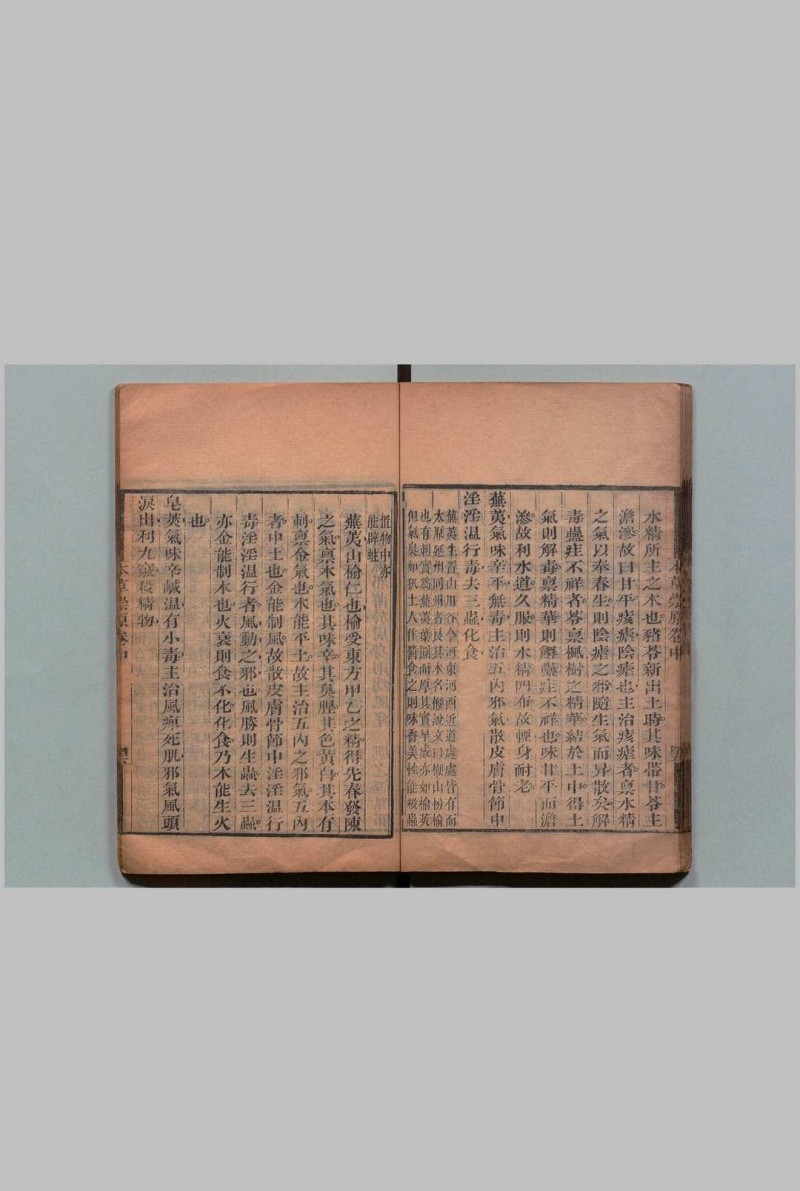 水精所主之木也豬苓新出土時其味帶甘苓主
澹滲故曰甘平痎瘧陰瘧也主治痎瘧者稟水精
之氣以奉春生則陰瘧之邪隨生氣而昇散矣解
毒蠱疰不祥者苓稟楓樹之精華結於土中得土
氣則解毒稟精華則解蠱疰不祥也味甘平而澹
滲故利水道久服則水精四布故輕身耐老
蕪荑氣味辛平無毒主治五內邪氣散皮膚骨節中
淫淫溫行毒去三蟲化食
蕪荑生晉山川谷今河東河西近道處處皆有而
太原延州同州者良其木名梗說文曰梗山枌榆
也有刺實為蕪荑葉圓而厚其實早成亦如榆莢
但氣臭如犼土人作醬食之則味香美性能殺蟲
置物中亦
能辟蛀
蕪荑山榆仁也榆受東方甲乙之精得先春發陳
之氣稟木氣也其味辛其臭腥其色黃白其本有
刺稟金氣也木能平土故主治五內之邪氣五內
者中土也金能制風故散皮膚骨節中淫淫溫行
毒淫淫溫行者風動之邪也風勝則生蟲去三蟲
亦金能制木也火衰則食不化化食乃木能生火
也
皂莢氣味辛鹹溫有小毒主治風痺死肌邪氣風頭
淚出利九竅殺精物
本草崇原卷中
本草崇原卷中